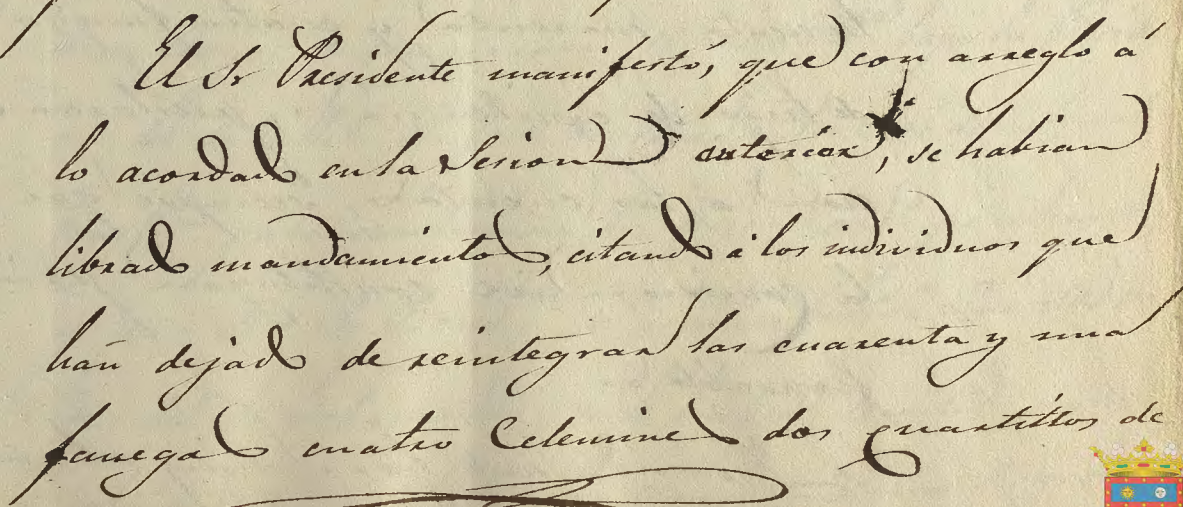 El Sr Presidente manifestó, que con arreglo á
lo acordado en la Sesion anterior, se habian
librado mandamientos, citando á los individuos que
han dejado de reintegrar las cuarenta y una
fanegas cuatro Celemines dos quartillos de